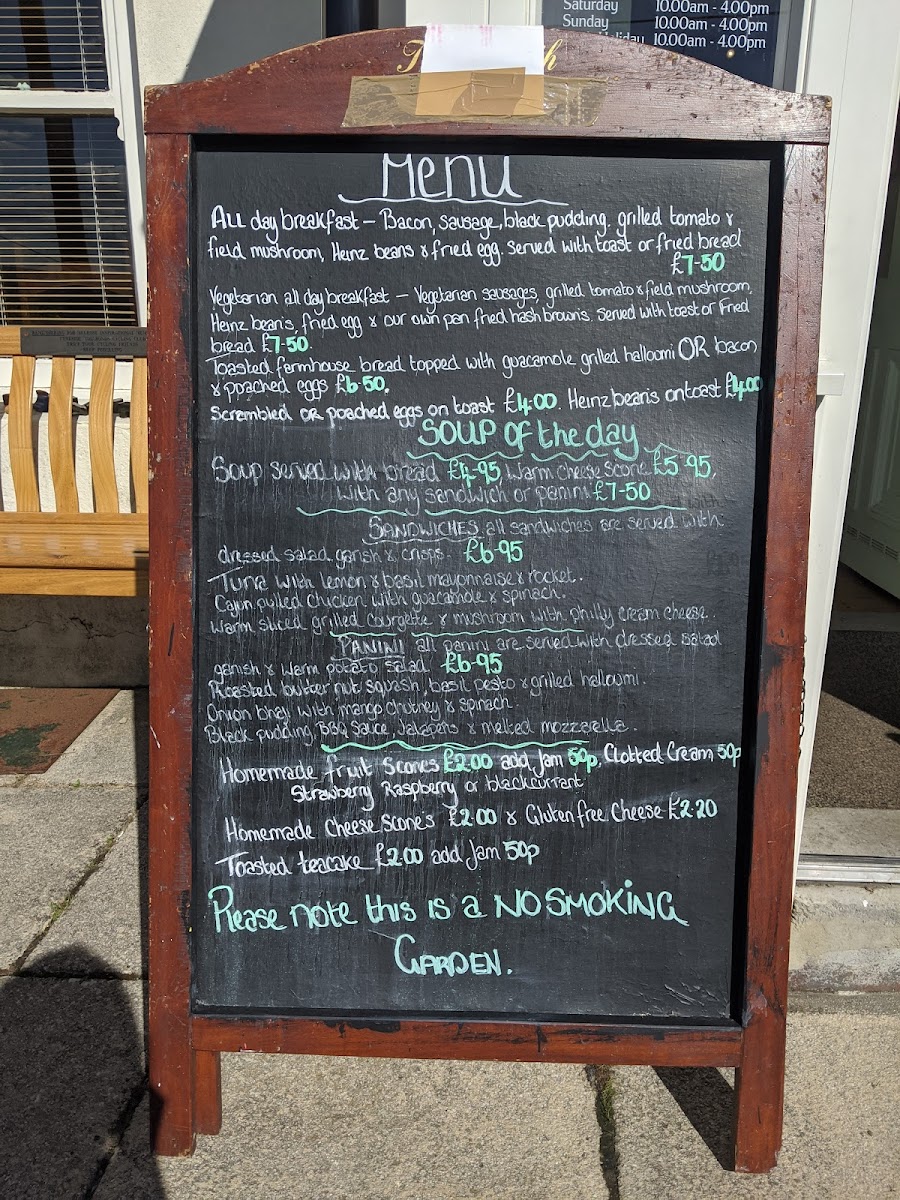 Saturday 10.00am - 4.00pm
Sunday 10.00am - 4.00pm
10.00am - 4.00pm
Menu
All day breakfast - Bacon, sausage, black pudding. grilled tomato &
field mushroom, Heinz beans & fried egg. Served with toast or fried bread
£7-50
Vegetarian all day breakfast - Vegetarian sausages, grilled tomato & field mushroom,
Heinz beans, fried egg & our own pan fried hash browns. Served with toast or Fried
bread £7.50.
Toasted farmhouse bread topped with guacamole grilled halloumi OR bacon
& poached eggs £6.50.
Scrambled or poached eggs on toast £4.00. Heinz beans on toast £4.00
Soup of the day
Soup served with bread £4-95, Warm cheese scone £5-95,
with any sandwich or panini £7-50
Sandwiches all sandwiches are served with
dressed salad garish & crisps. £6-95
Tuna with lemon & basil mayonnaise & rocket.
Cajun pulled chicken with guacamole & spinach.
Warm sliced grilled courgette & mushroom with philly cream cheese.
Panini all panini are served with dressed salad
ganish & warm potato salad £6-95
Roasted butter nut squash, basil pesto & grilled halloumi.
Onion bhaji with mango chutney & spinach.
Black pudding, BBQ sauce, Jalapeños & melted mozzarella.
Homemade fruit scones £2.00 add Jam 50p, Clotted Cream 50p
Strawberry Raspberry or blackcurrant
Homemade cheese scone's £2.00 & Gluten free Cheese £2.20
Toasted teacake £2.00 add Jam 50p
Please note this is a NO SMOKING
GARDEN.